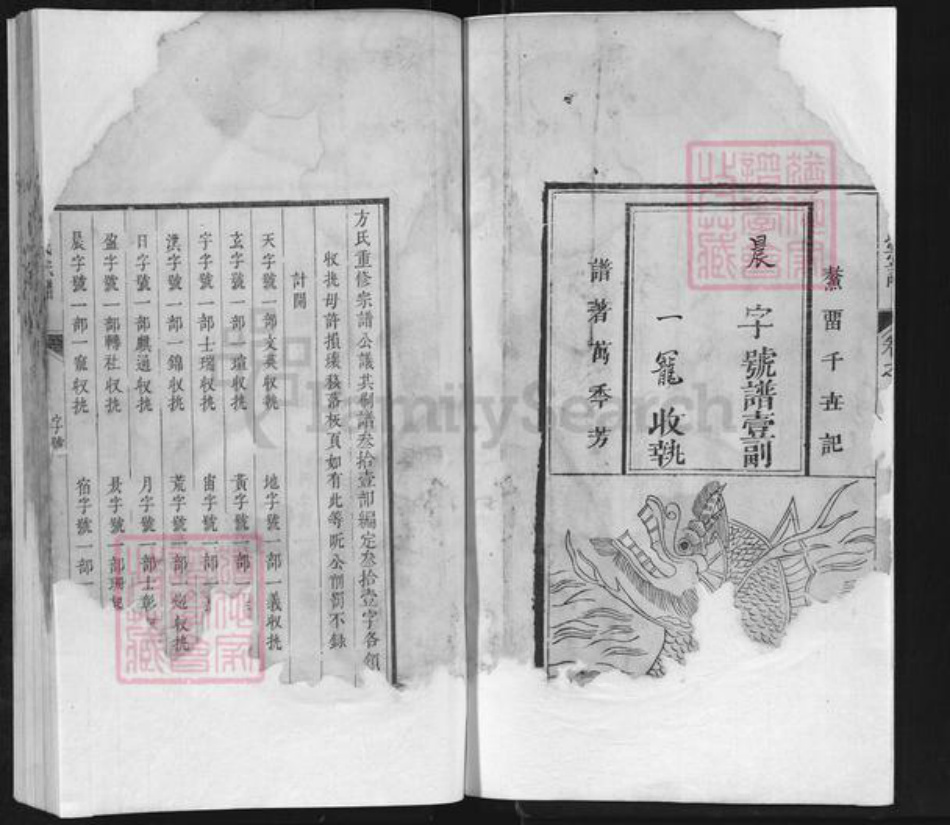 鰲畱千㐀記
晨
字號譜壹副
一寵收執
譜著萬季芳
方氏重修宗譜公議共刷譜叁拾壹部編定叁拾壹字各領
收執毋許損壞移落板頁如有此等听公削罰不錄
計開
天字號一部文英收執
地字號一部一義收執
玄字號一部一瑄收執
黃字號一部一
宇字號一部士瑞收執
宙字號一部一
洪字號一部一錦收執
荒字號一部一炮收執
日字號一部麒通收執
月字號一部士彰
盈字號一部轉社收執
昃字號一部
晨字號一部一寵收執
宿字號一部一
字號
FamilySearch